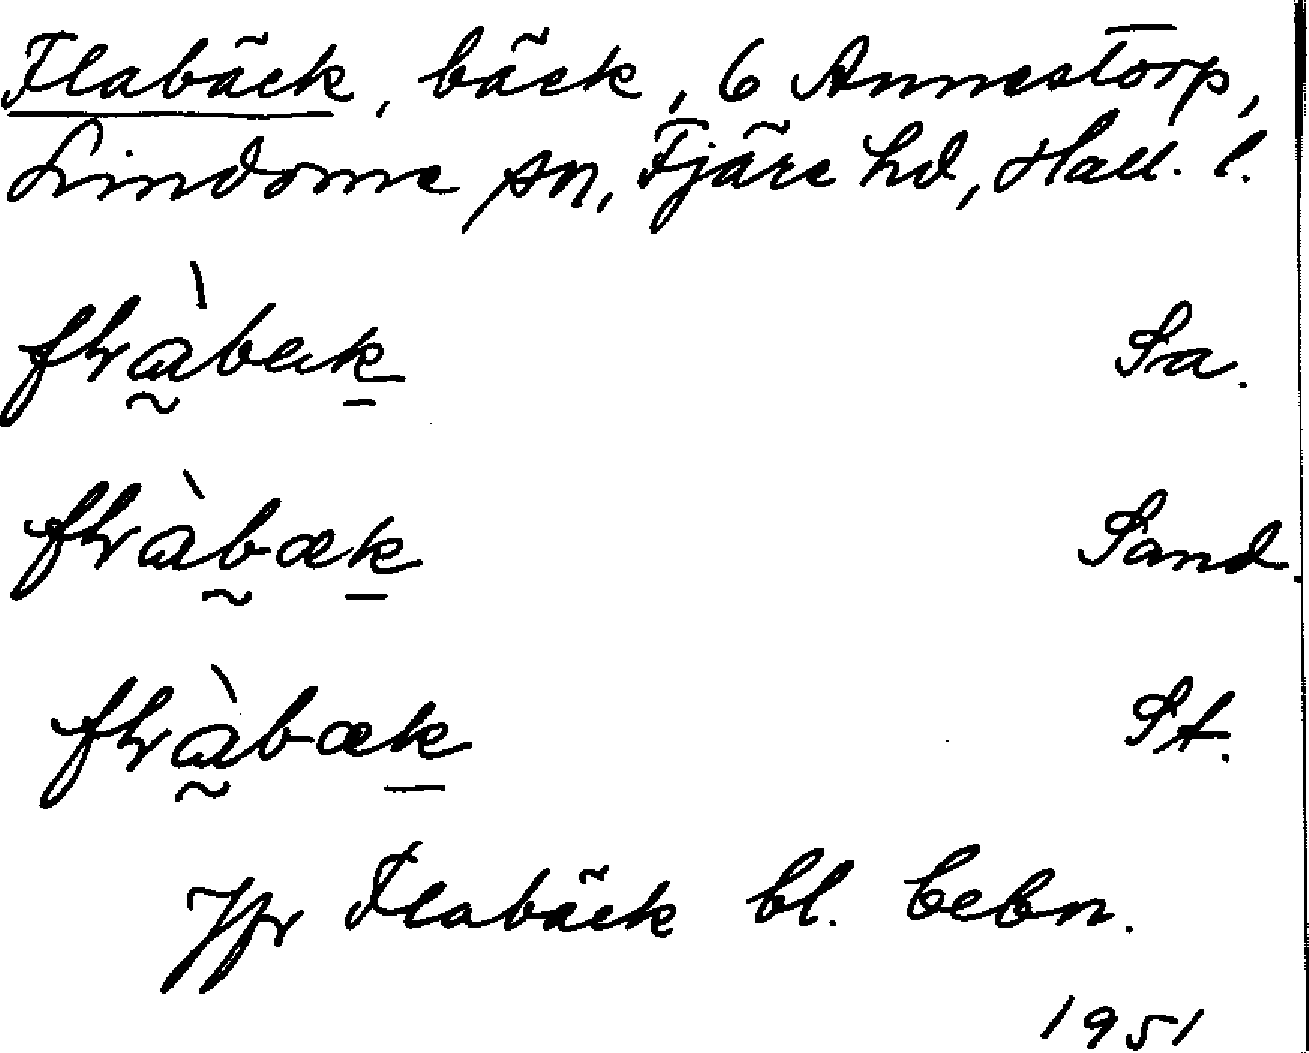 Flabäck, bäck, 6 Annestorp,
Lindome sn, Fjäre hd, Hall. l.
Sa.
Sand.
St.
Jfr Flabäck bl. bebn.
1951